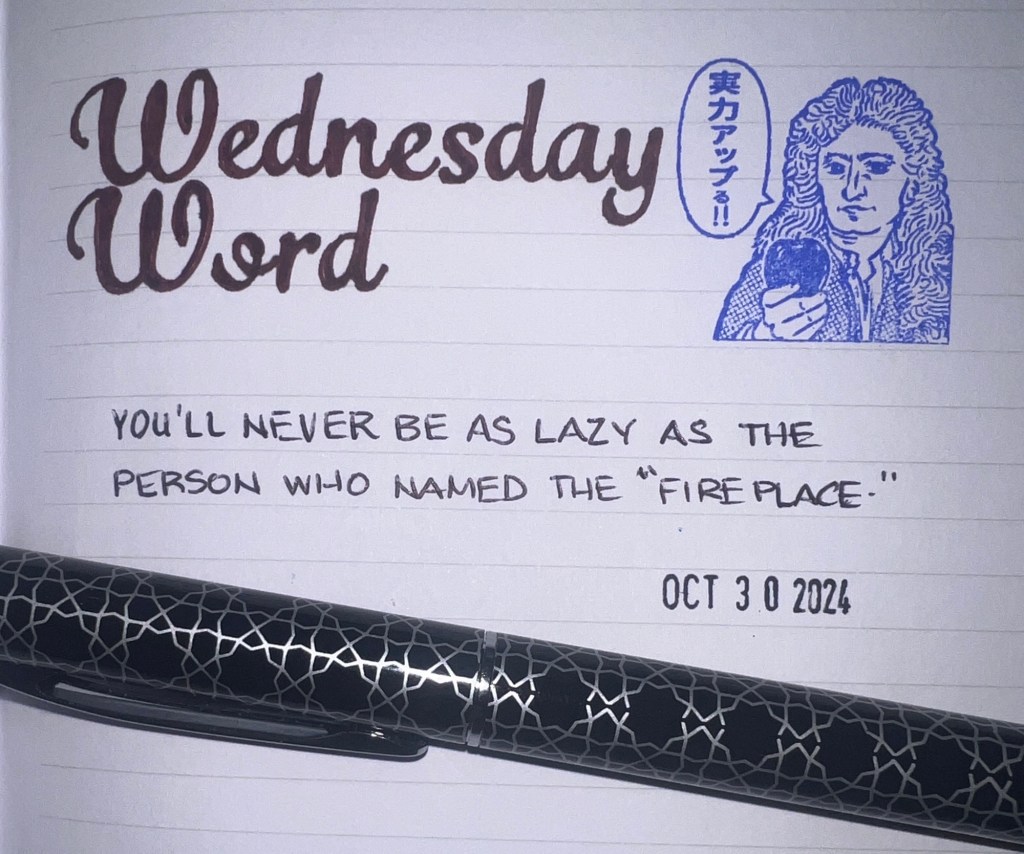 Wednesday
Word
実力アップる!!
YOU'LL NEVER BE AS LAZY AS THE
PERSON WHO NAMED THE "FIREPLACE."
OCT 30 2024